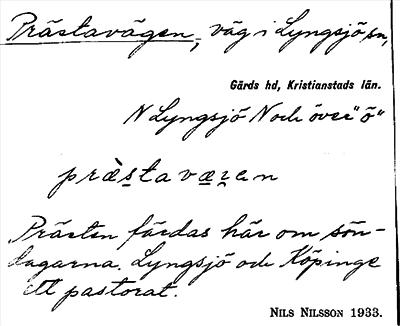 Prästavägen, väg i Lyngsjö sn,
Gärds hd, Kristianstads län.
N Lyngsjö N och över "ö"
præ̀s̱tavæ̱ꝛ̱en
Prästen färdas här om sön-
dagarna. Lyngsjö och Köpinge
ett pastorat.
NILS NILSSON 1933.